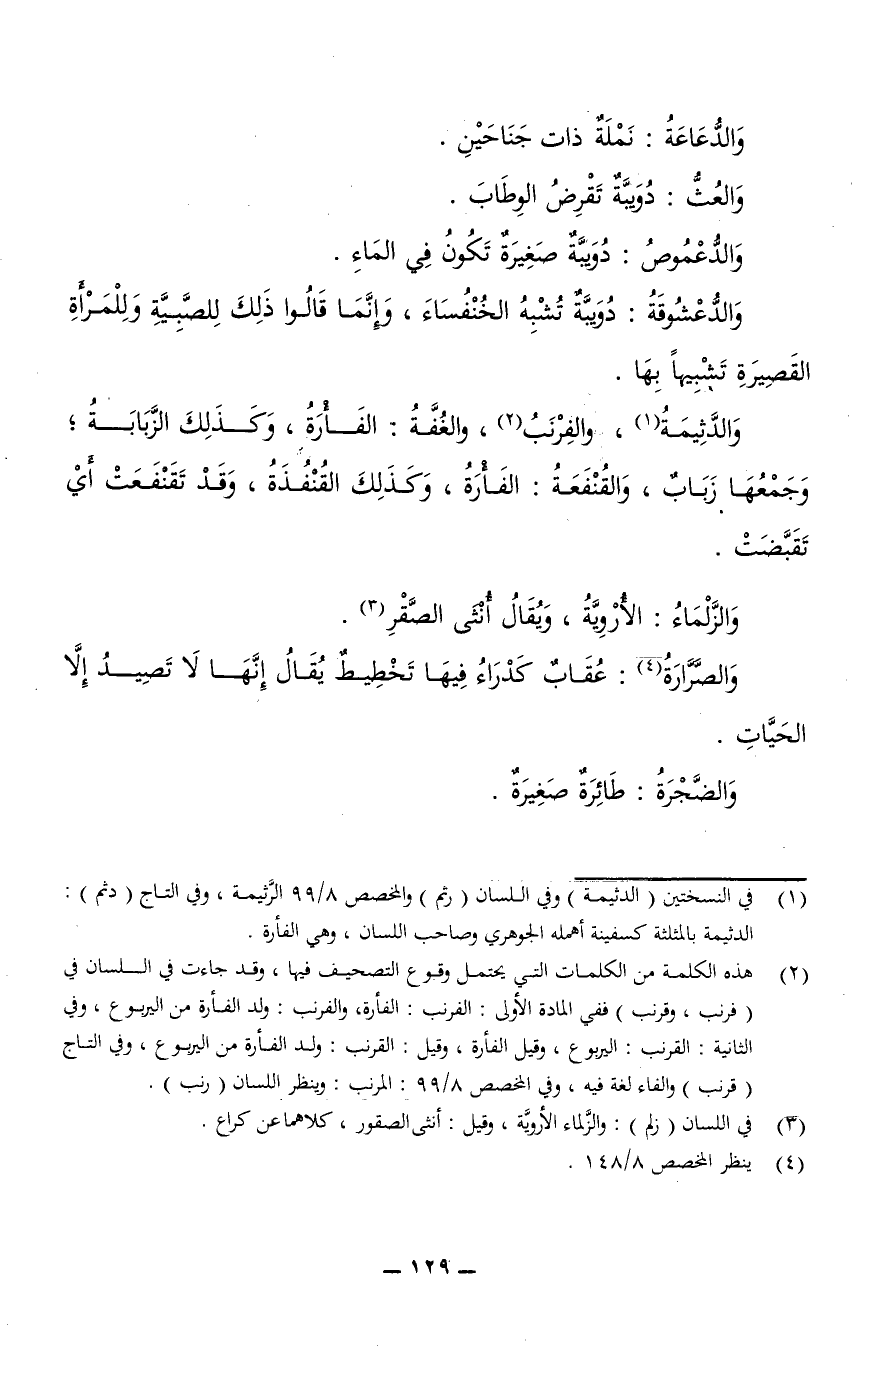 وَالدُّعَاعَةُ : نَمْلَةٌ ذات جَنَاحَيْنِ .
وَالعُثُّ : دُوَيبَّةٌ تَقْرِضُ الوِطَابَ .
وَالدُّعْمُوصُ : دُوَيبَّةٌ صَغِيرَةٌ تَكُونُ فِي المَاءِ .
وَالدُّعْشُوقَةُ : دُوَيبَّةٌ تُشْبِهُ الخُنْفُسَاءَ ، وَإِنَّمَا قَالُوا ذَلِكَ لِلصَّبِيَّةِ وَلِلْمَرْأَةِ
القَصِيرَةِ تَشْبِيهاً بِهَا .
وَالدَّثِيمَةُ(١) ، والفِرْنَبُ(٢) ، والغُفَّةُ : الفَأْرَةُ ، وَكَذلِكَ الزَّبَابَةُ ؛
وَجَمْعُهَا زَبَابٌ ، وَالقُنْفَعَةُ : الفَأْرَةُ ، وَكَذَلِكَ القُنْفُذَةُ ، وَقَدْ تَقَنْفَعَتْ أَيْ
تَقَبَّضَتْ .
وَالزَّلْمَاءُ : الأُرْوِيَّةُ ، وَيُقَالُ أُنْثَى الصَّقْرِ(٣) .
وَالصَّرَّارَةُ(٤) : عُقَابٌ كَدْرَاءُ فِيهَا تَخْطِيطٌ يُقَالُ إِنَّهَا لَا تَصِيدُ إِلَّا
الحَيَّاتِ .
وَالضَّجْرَةُ : طَائِرَةٌ صَغِيرَةٌ .
(١) في النسختين ( الدثيمة ) وفي اللسان ( رثم ) والمخصص ٩٩/٨ الرَّثيمة ، وفي التاج ( دثم ) :
الدثيمة بالمثلثة كسفينة أهمله الجوهري وصاحب اللسان ، وهي الفأرة .
(٢) هذه الكلمة من الكلمات التي يحتمل وقوع التصحيف فيها ، وقد جاءت في اللسان في
( فرنب ، وقرنب ) ففي المادة الأولى : الفرنب : الفأرة، والفرنب : ولد الفأرة من اليربوع ، وفي
الثانية : القرنب : اليربوع ، وقيل الفأرة ، وقيل : القرنب : ولد الفأرة من اليربوع ، وفي التاج
( قرنب ) والفاء لغة فيه ، وفي المخصص ٩٩/٨ : المرنب : وينظر اللسان ( رنب ) .
(٣) في اللسان ( زلم ) : والزَّلماء الأرويَّة ، وقيل : أنثى الصقور ، كلاهما عن كراع .
(٤) ينظر المخصص ١٤٨/٨ .
— ١٢٩ —